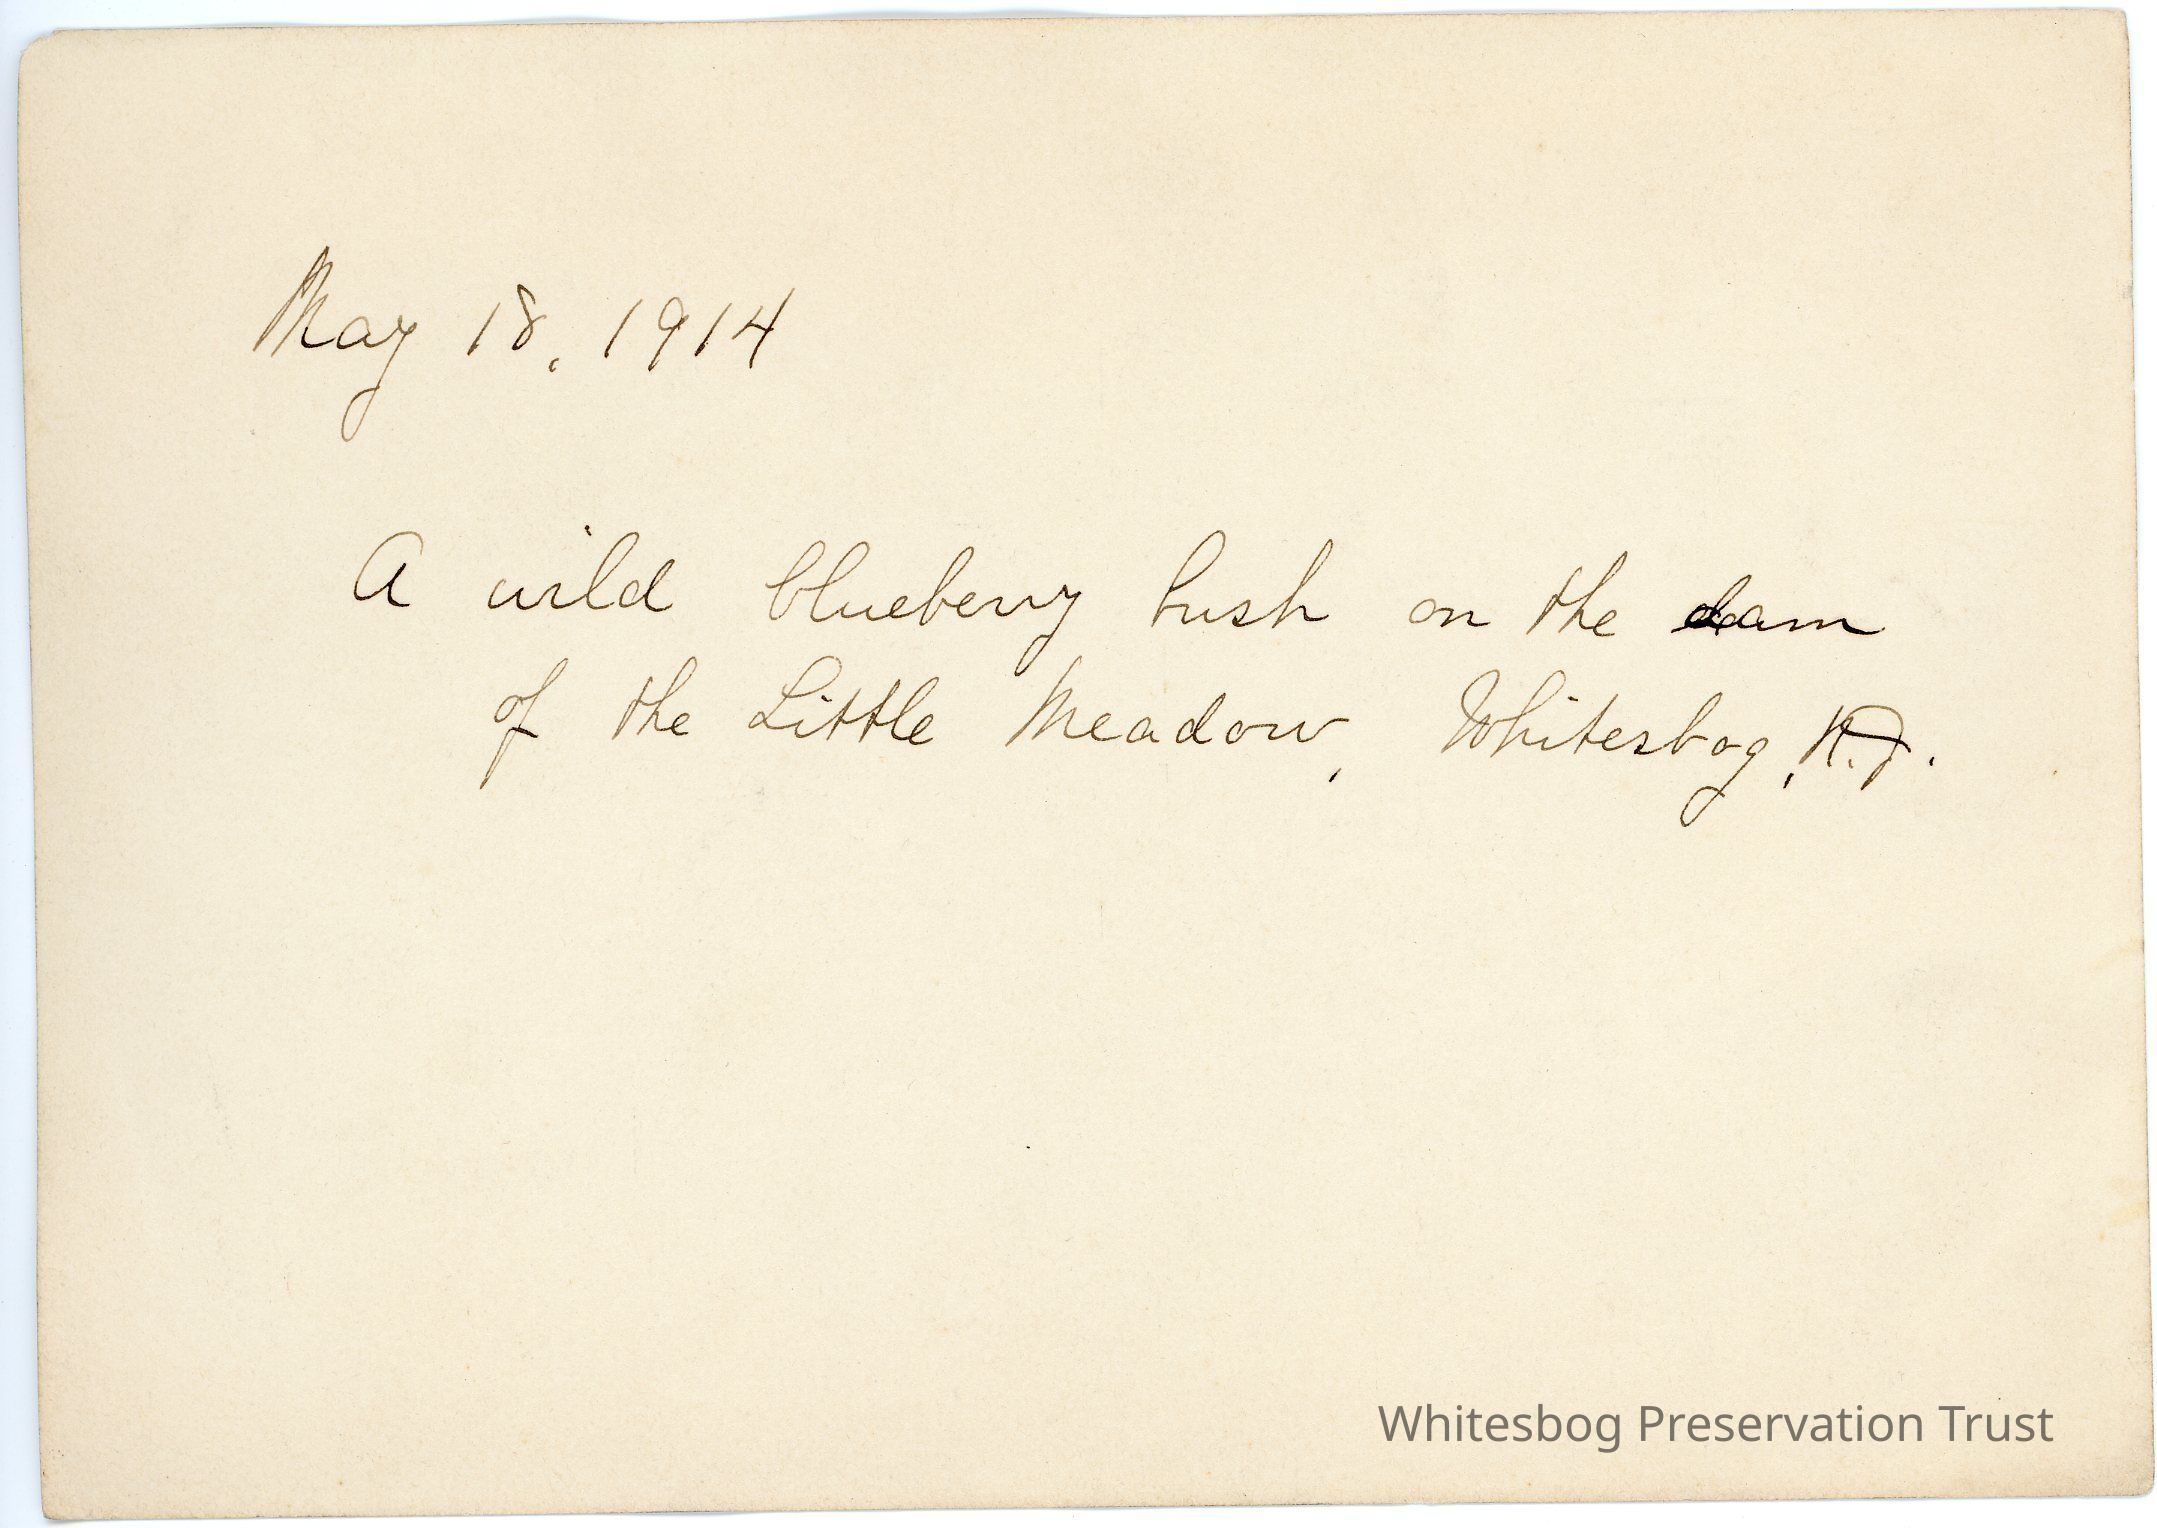 May 18, 1914
A wild blueberry bush on the dam
of the Little Meadow, Whitesbog, N.J.
Whitesbog Preservation Trust